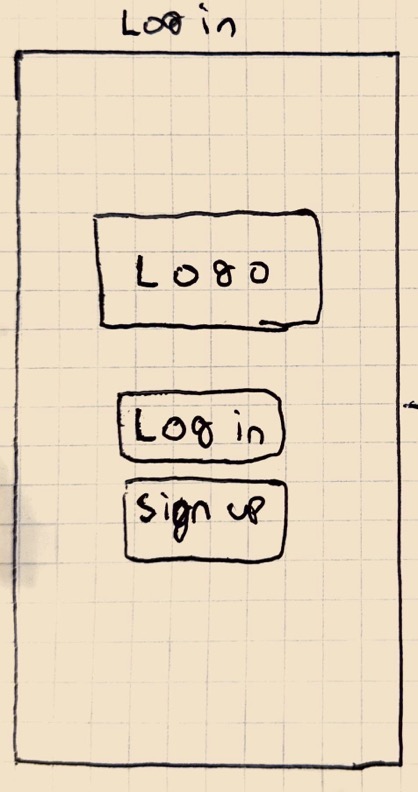 Log in
Logo
Log in
Sign up